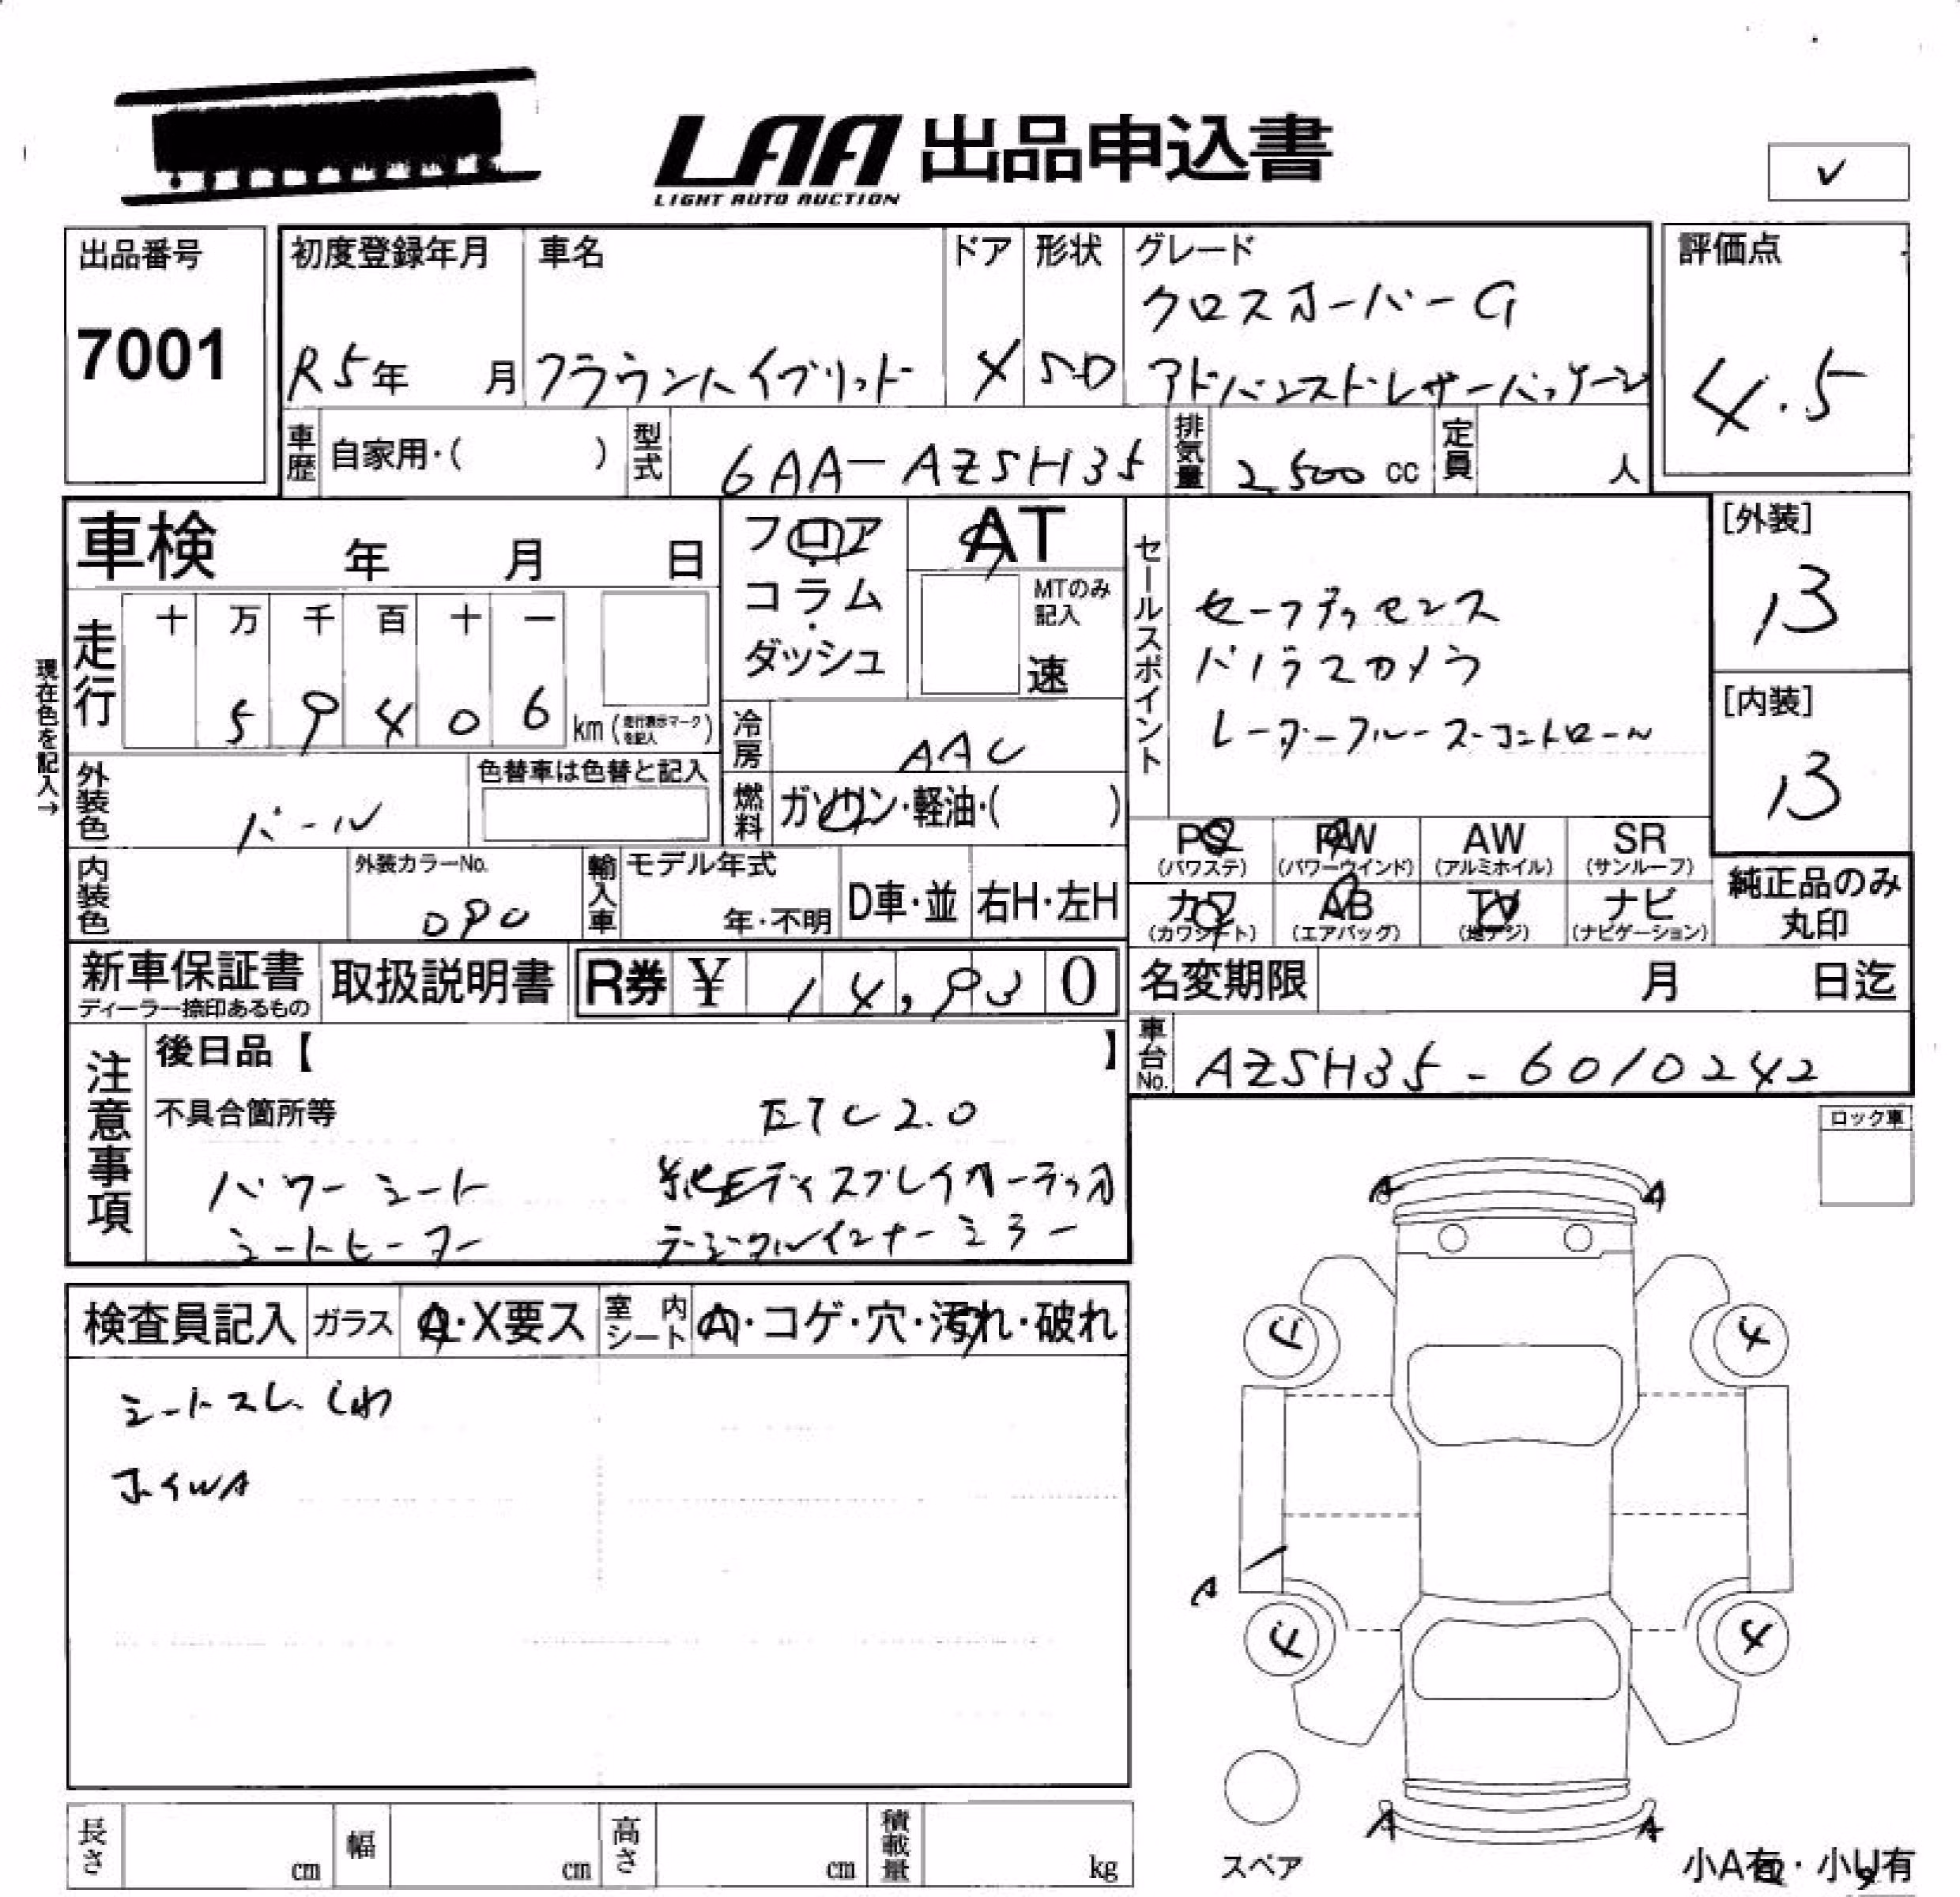 LAA 出品申込書
LIGHT AUTO AUCTION
✓
出品番号
7001
初度登録年月
R5年 月
車名
クラウンハイブリッド
ドア
4
形状
SD
グレード
クロスオーバーG
アドバンスド・レザーパッケージ
評価点
4.5
車歴 自家用・( )
型式 6AA-AZSH35
排気量 2500 cc
定員 人
車検 年 月 日
フロア・コラム・ダッシュ
AT
MTのみ記入
速
セールスポイント
セーフティセンス
パノラマカメラ
レーダークルーズコントロール
[外装]
B
[内装]
B
現在色を記入→
走行
十 万 千 百 十 一
5 9 4 0 6 km (走行表示マークを記入)
冷房 AAC
外装色 パール
色替車は色替と記入
燃料 ガソリン・軽油・( )
内装色
外装カラーNo.
090
輸入車
モデル年式
年・不明
D車・並
右H・左H
PS (パワステ)
PW (パワーウインド)
AW (アルミホイル)
SR (サンルーフ)
カワ (カワシート)
AB (エアバッグ)
TV (地デジ)
ナビ (ナビゲーション)
純正品のみ丸印
新車保証書
ディーラー捺印あるもの
取扱説明書
R券 ¥ 14,930
名変期限 月 日迄
車台No. AZSH35-6010242
注意事項
後日品【 】
不具合箇所等
ETC2.0
パワーシート 純正ディスプレイオーディオ
シートヒーター デジタルインナーミラー
ロック車
検査員記入
ガラス A・X要ス
室内シート A・コゲ・穴・汚れ・破れ
シートスレ しわ
ホイWA
A A
4 4
A
4 4
A A
スペア
小A有・小U有
長さ cm
幅 cm
高さ cm
積載量 kg